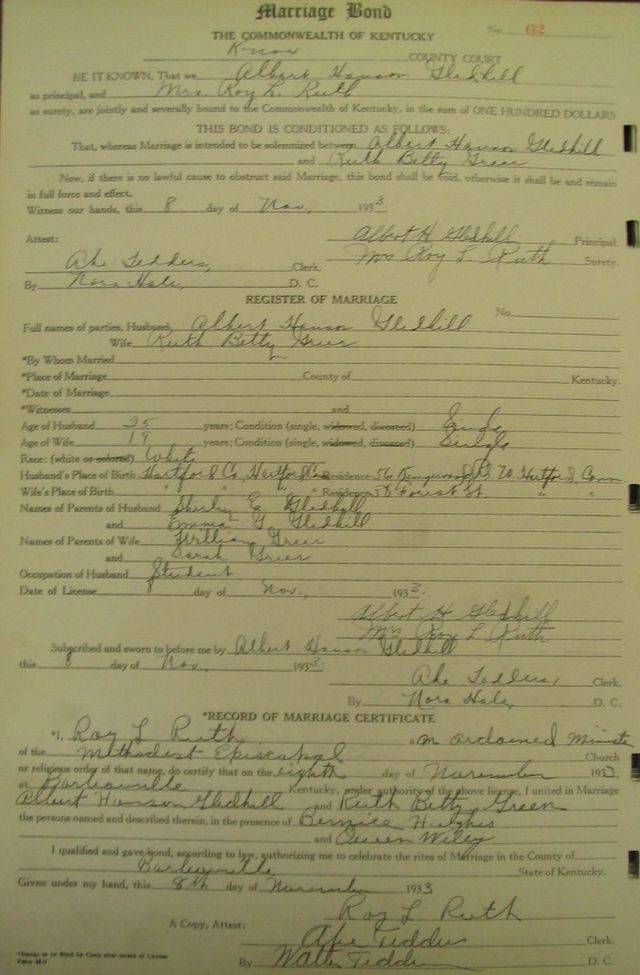 Marriage Bond
No. 62
THE COMMONWEALTH OF KENTUCKY
Knox COUNTY COURT
BE IT KNOWN, That we Albert Hanson Gledhill
as principal, and Mrs. Roy L. Ruth
as surety, are jointly and severally bound to the Commonwealth of Kentucky, in the sum of ONE HUNDRED DOLLARS
THIS BOND IS CONDITIONED AS FOLLOWS:
That, whereas Marriage is intended to be solemnized between Albert Hanson Gledhill
and Ruth Betty Greer
Now, if there is no lawful cause to obstruct said Marriage, this bond shall be void, otherwise it shall be and remain
in full force and effect.
Witness our hands, this 8 day of Nov, 1933
Albert H Gledhill Principal.
Attest: Mrs Roy L Ruth Surety.
Abe Tedders, Clerk.
By Nora Hale, D. C.
REGISTER OF MARRIAGE
No.
Full names of parties, Husband, Albert Hanson Gledhill
Wife Ruth Betty Greer
*By Whom Married
*Place of Marriage County of Kentucky.
*Date of Marriage
*Witnesses and
Age of Husband 25 years; Condition (single, widowed, divorced) Single
Age of Wife 19 years; Condition (single, widowed, divorced) Single
Race: (white or colored) White
Husband's Place of Birth Hartford Co, Hartford Conn Residence 56 W. Hartford, Conn
Wife's Place of Birth " " " Residence 58 Forest St " "
Names of Parents of Husband Shirley E. Gledhill
and Emma G. Gledhill
Names of Parents of Wife William Greer
and Sarah Greer
Occupation of Husband Student
Date of License 8 day of Nov, 1933.
Albert H Gledhill
Mrs Roy L Ruth
Subscribed and sworn to before me by Albert Hanson Gledhill
this 8 day of Nov, 1933.
Abe Tedders, Clerk.
By Nora Hale, D. C.
*RECORD OF MARRIAGE CERTIFICATE
*I, Roy L Ruth a an ordained Minister
of the Methodist Episcopal Church
or religious order of that name, do certify that on the eighth day of November 1933
at Barbourville Kentucky, under authority of the above license, I united in Marriage
Albert Hanson Gledhill and Ruth Betty Green
the persons named and described therein, in the presence of Bernice Hughes
and Owen Wiley
I qualified and gave bond, according to law, authorizing me to celebrate the rites of Marriage in the County of
Barbourville State of Kentucky.
Given under my hand, this 8th day of November 1933
Roy L Ruth
A Copy, Attest: Abe Tedders Clerk.
By Walter Tedders D. C.